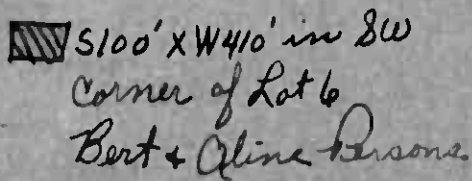 S100' x W410' in SW
Corner of Lot 6
Bert + Aline Persons